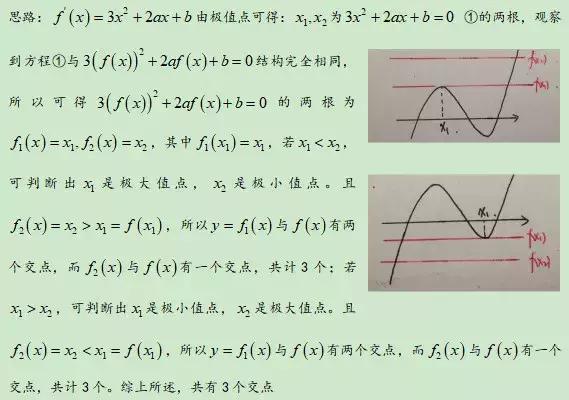 思路：f'(x)=3x²+2ax+b由极值点可得：x₁,x₂为3x²+2ax+b=0 ①的两根，观察
到方程①与3(f(x))²+2af(x)+b=0结构完全相同，
所以可得3(f(x))²+2af(x)+b=0的两根为
f₁(x)=x₁,f₂(x)=x₂，其中f₁(x₁)=x₁，若x₁<x₂，
可判断出x₁是极大值点，x₂是极小值点。且
f₂(x)=x₂>x₁=f(x₁)，所以y=f₁(x)与f(x)有两
个交点，而f₂(x)与f(x)有一个交点，共计3个；若
x₁>x₂，可判断出x₁是极小值点，x₂是极大值点。且
f₂(x)=x₂<x₁=f(x₁)，所以y=f₁(x)与f(x)有两个交点，而f₂(x)与f(x)有一个
交点，共计3个。综上所述，共有3个交点
x₁
x₁
f(x₁)
f(x₂)